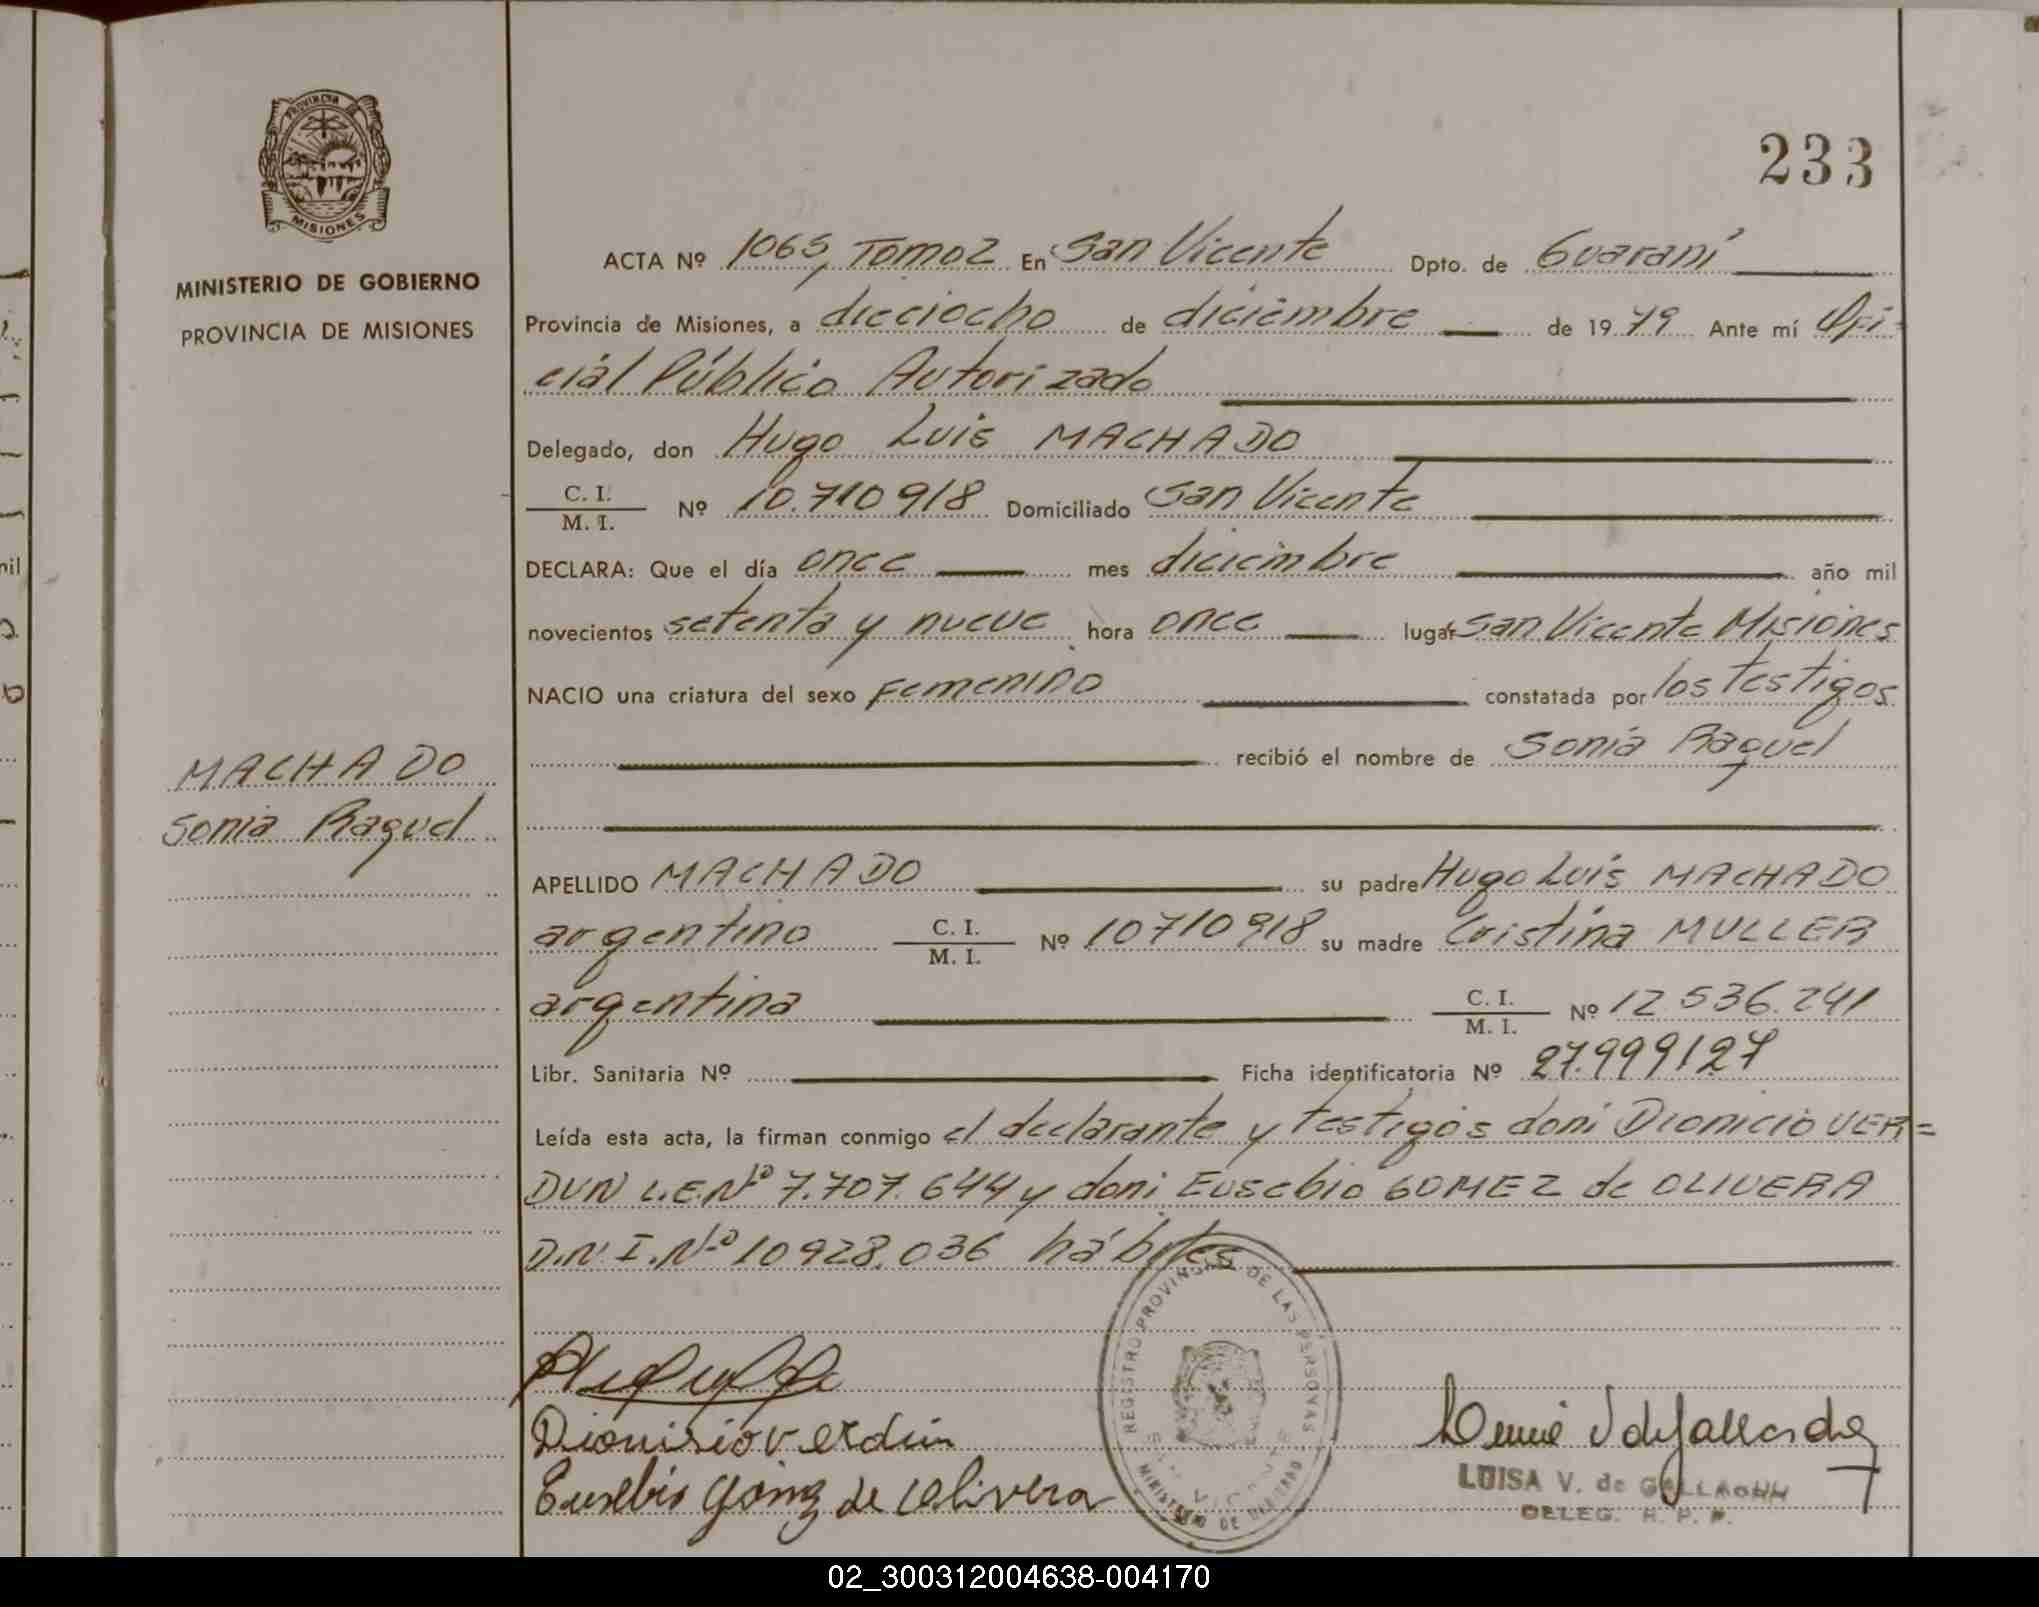 233
PROVINCIA DE
MISIONES
MINISTERIO DE GOBIERNO
PROVINCIA DE MISIONES
MACHADO
Sonia Raquel
ACTA Nº 1065, Tomo 2 En San Vicente Dpto. de Guaraní
Provincia de Misiones, a dieciocho de diciembre de 1979 Ante mí Ofi-
cial Público Autorizado
Delegado, don Hugo Luis MACHADO
C. I. / M. I. Nº 10.710918 Domiciliado San Vicente
DECLARA: Que el día once mes diciembre año mil
novecientos setenta y nueve hora once lugar San Vicente Misiones
NACIO una criatura del sexo Femenino constatada por los testigos
recibió el nombre de Sonia Raquel
APELLIDO MACHADO su padre Hugo Luis MACHADO
argentino C. I. / M. I. Nº 10710918 su madre Cristina MULLER
argentina C. I. / M. I. Nº 12.536.241
Libr. Sanitaria Nº Ficha identificatoria Nº 27.999127
Leída esta acta, la firman conmigo el declarante y testigos don: Dionicio VER=
DUN L.E.Nº 7.707.644 y don: Eusebio GOMEZ de OLIVERA
D.N.I.Nº 10928.036 hábiles
REGISTRO PROVINCIAL DE LAS PERSONAS
SAN VICENTE
MINISTERIO DE GOBIERNO
Dionisio verdun
Eusebio Gomez de Olivera
LUISA V. de
DELEG. R. P. P.
02_300312004638-004170